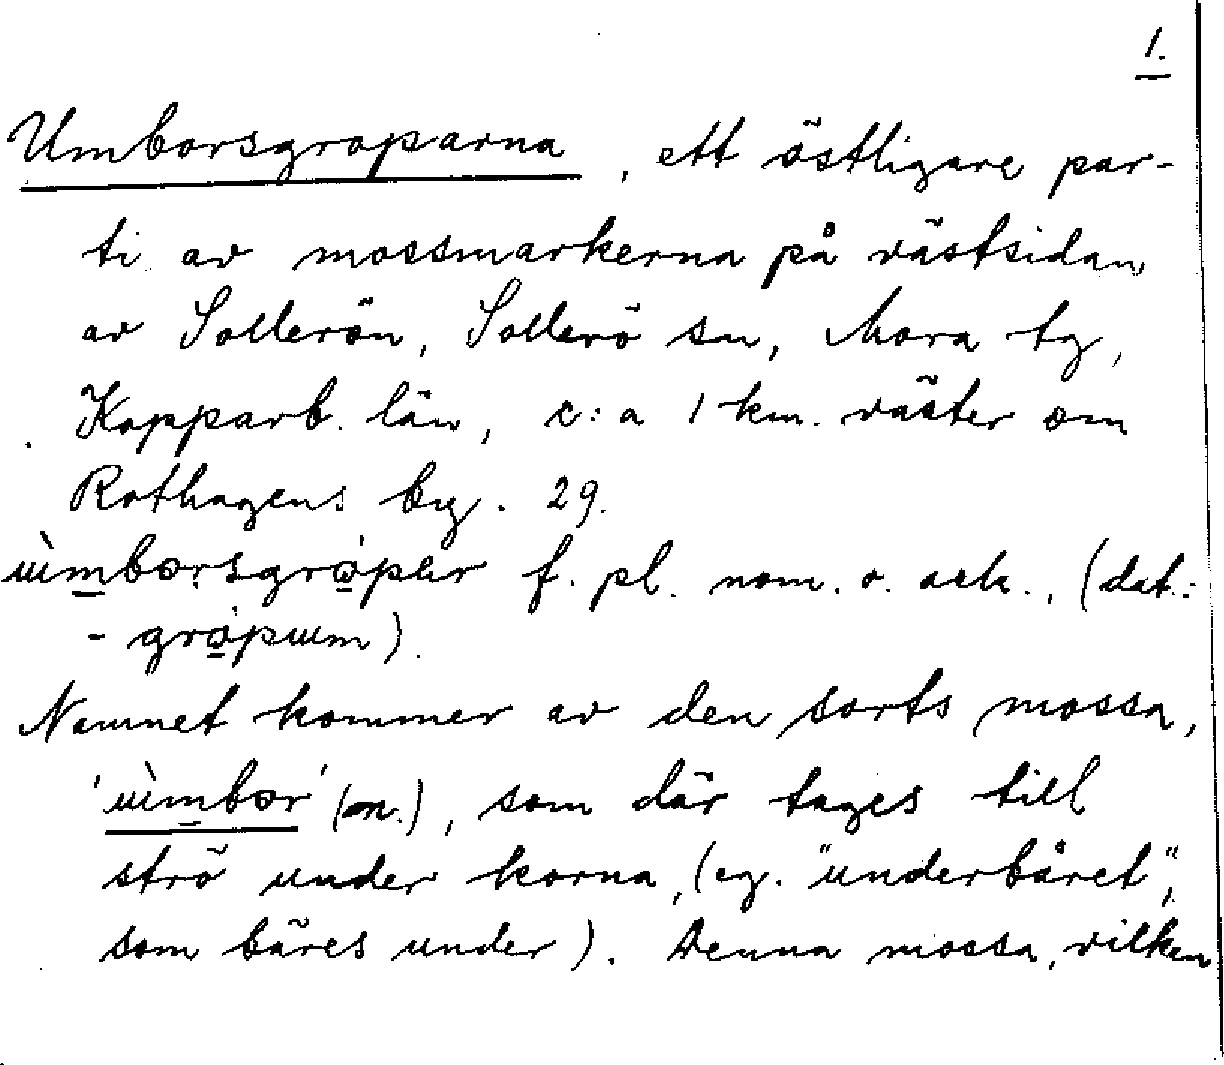 1.
Umborsgroparna, ett östligare par-
ti av mossmarkerna på västsidan
av Sollerön, Sollerö sn, Mora tg,
Kopparb. län, c:a 1 km. väster om
Rothagens by. 29.
ùmborsgropur f. pl. nom. o. ack., (dat.:
- gropum).
Namnet kommer av den sorts mossa,
'ùmbor' (m.), som där tages till
strö under korna, (eg. "underbåret",
som bäres under). Denna mossa, vilken